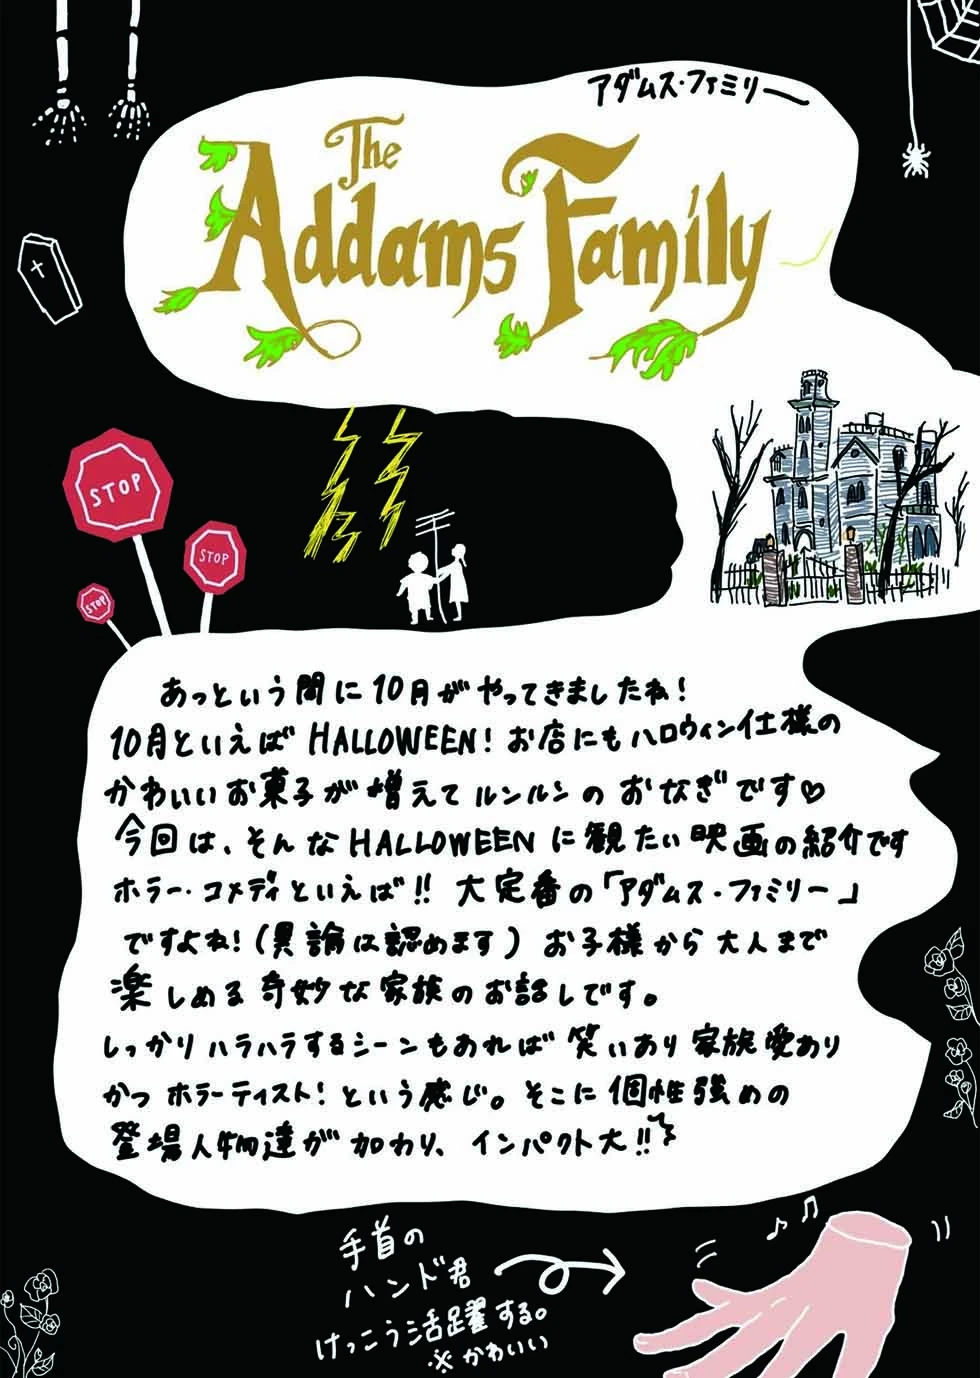 アダムス・ファミリー
The
Addams Family
STOP
STOP
STOP
あっという間に10月がやってきましたね!
10月といえばHALLOWEEN!お店にもハロウィン仕様の
かわいいお菓子が増えてルンルンのおなぎです♡
今回は、そんなHALLOWEENに観たい映画の紹介です
ホラー・コメディといえば!!大定番の「アダムス・ファミリー」
ですよね!(異論は認めます)お子様から大人まで
楽しめる奇妙な家族のお話しです。
しっかりハラハラするシーンもあれば笑いあり家族愛あり
かつホラーテイスト!という感じ。そこに個性強めの
登場人物達が加わり、インパクト大!!
手首の
ハンド君
けっこう活躍する。
※かわいい